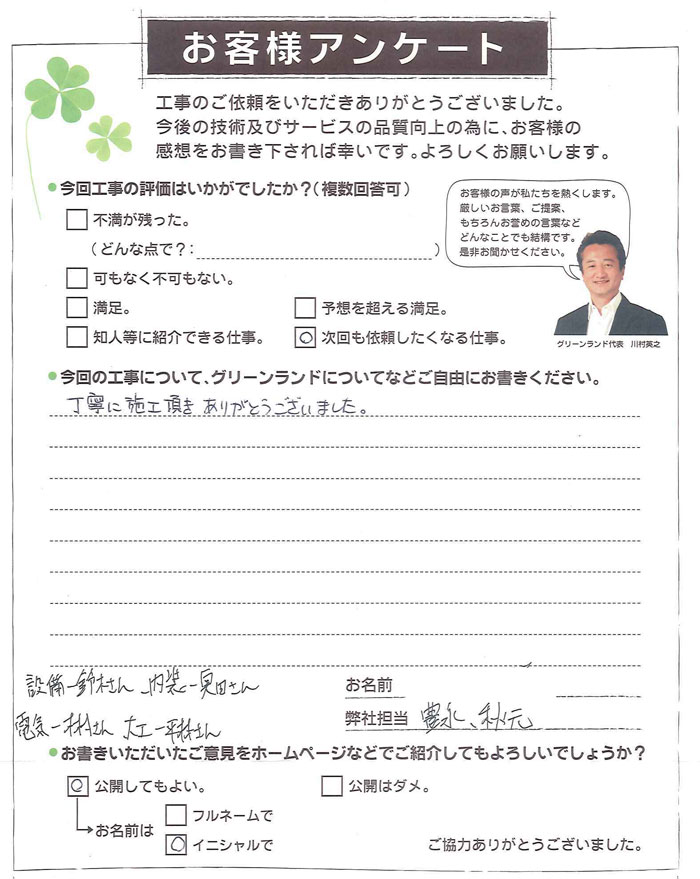 お客様アンケート
工事のご依頼をいただきありがとうございました。
今後の技術及びサービスの品質向上の為に、お客様の
感想をお書き下されば幸いです。よろしくお願いします。
●今回工事の評価はいかがでしたか?(複数回答可)
不満が残った。
(どんな点で?: )
可もなく不可もない。
満足。
予想を超える満足。
知人等に紹介できる仕事。
次回も依頼したくなる仕事。
お客様の声が私たちを熱くします。
厳しいお言葉、ご提案、
もちろんお誉めの言葉など
どんなことでも結構です。
是非お聞かせください。
グリーンランド代表 川村英之
●今回の工事について、グリーンランドについてなどご自由にお書きください。
丁寧に施工頂きありがとうございました。
設備-鈴木さん 内装-奥田さん
お名前
電気-林さん 大工-平林さん
弊社担当 豊永、秋元
●お書きいただいたご意見をホームページなどでご紹介してもよろしいでしょうか?
公開してもよい。
公開はダメ。
お名前は
フルネームで
イニシャルで
ご協力ありがとうございました。